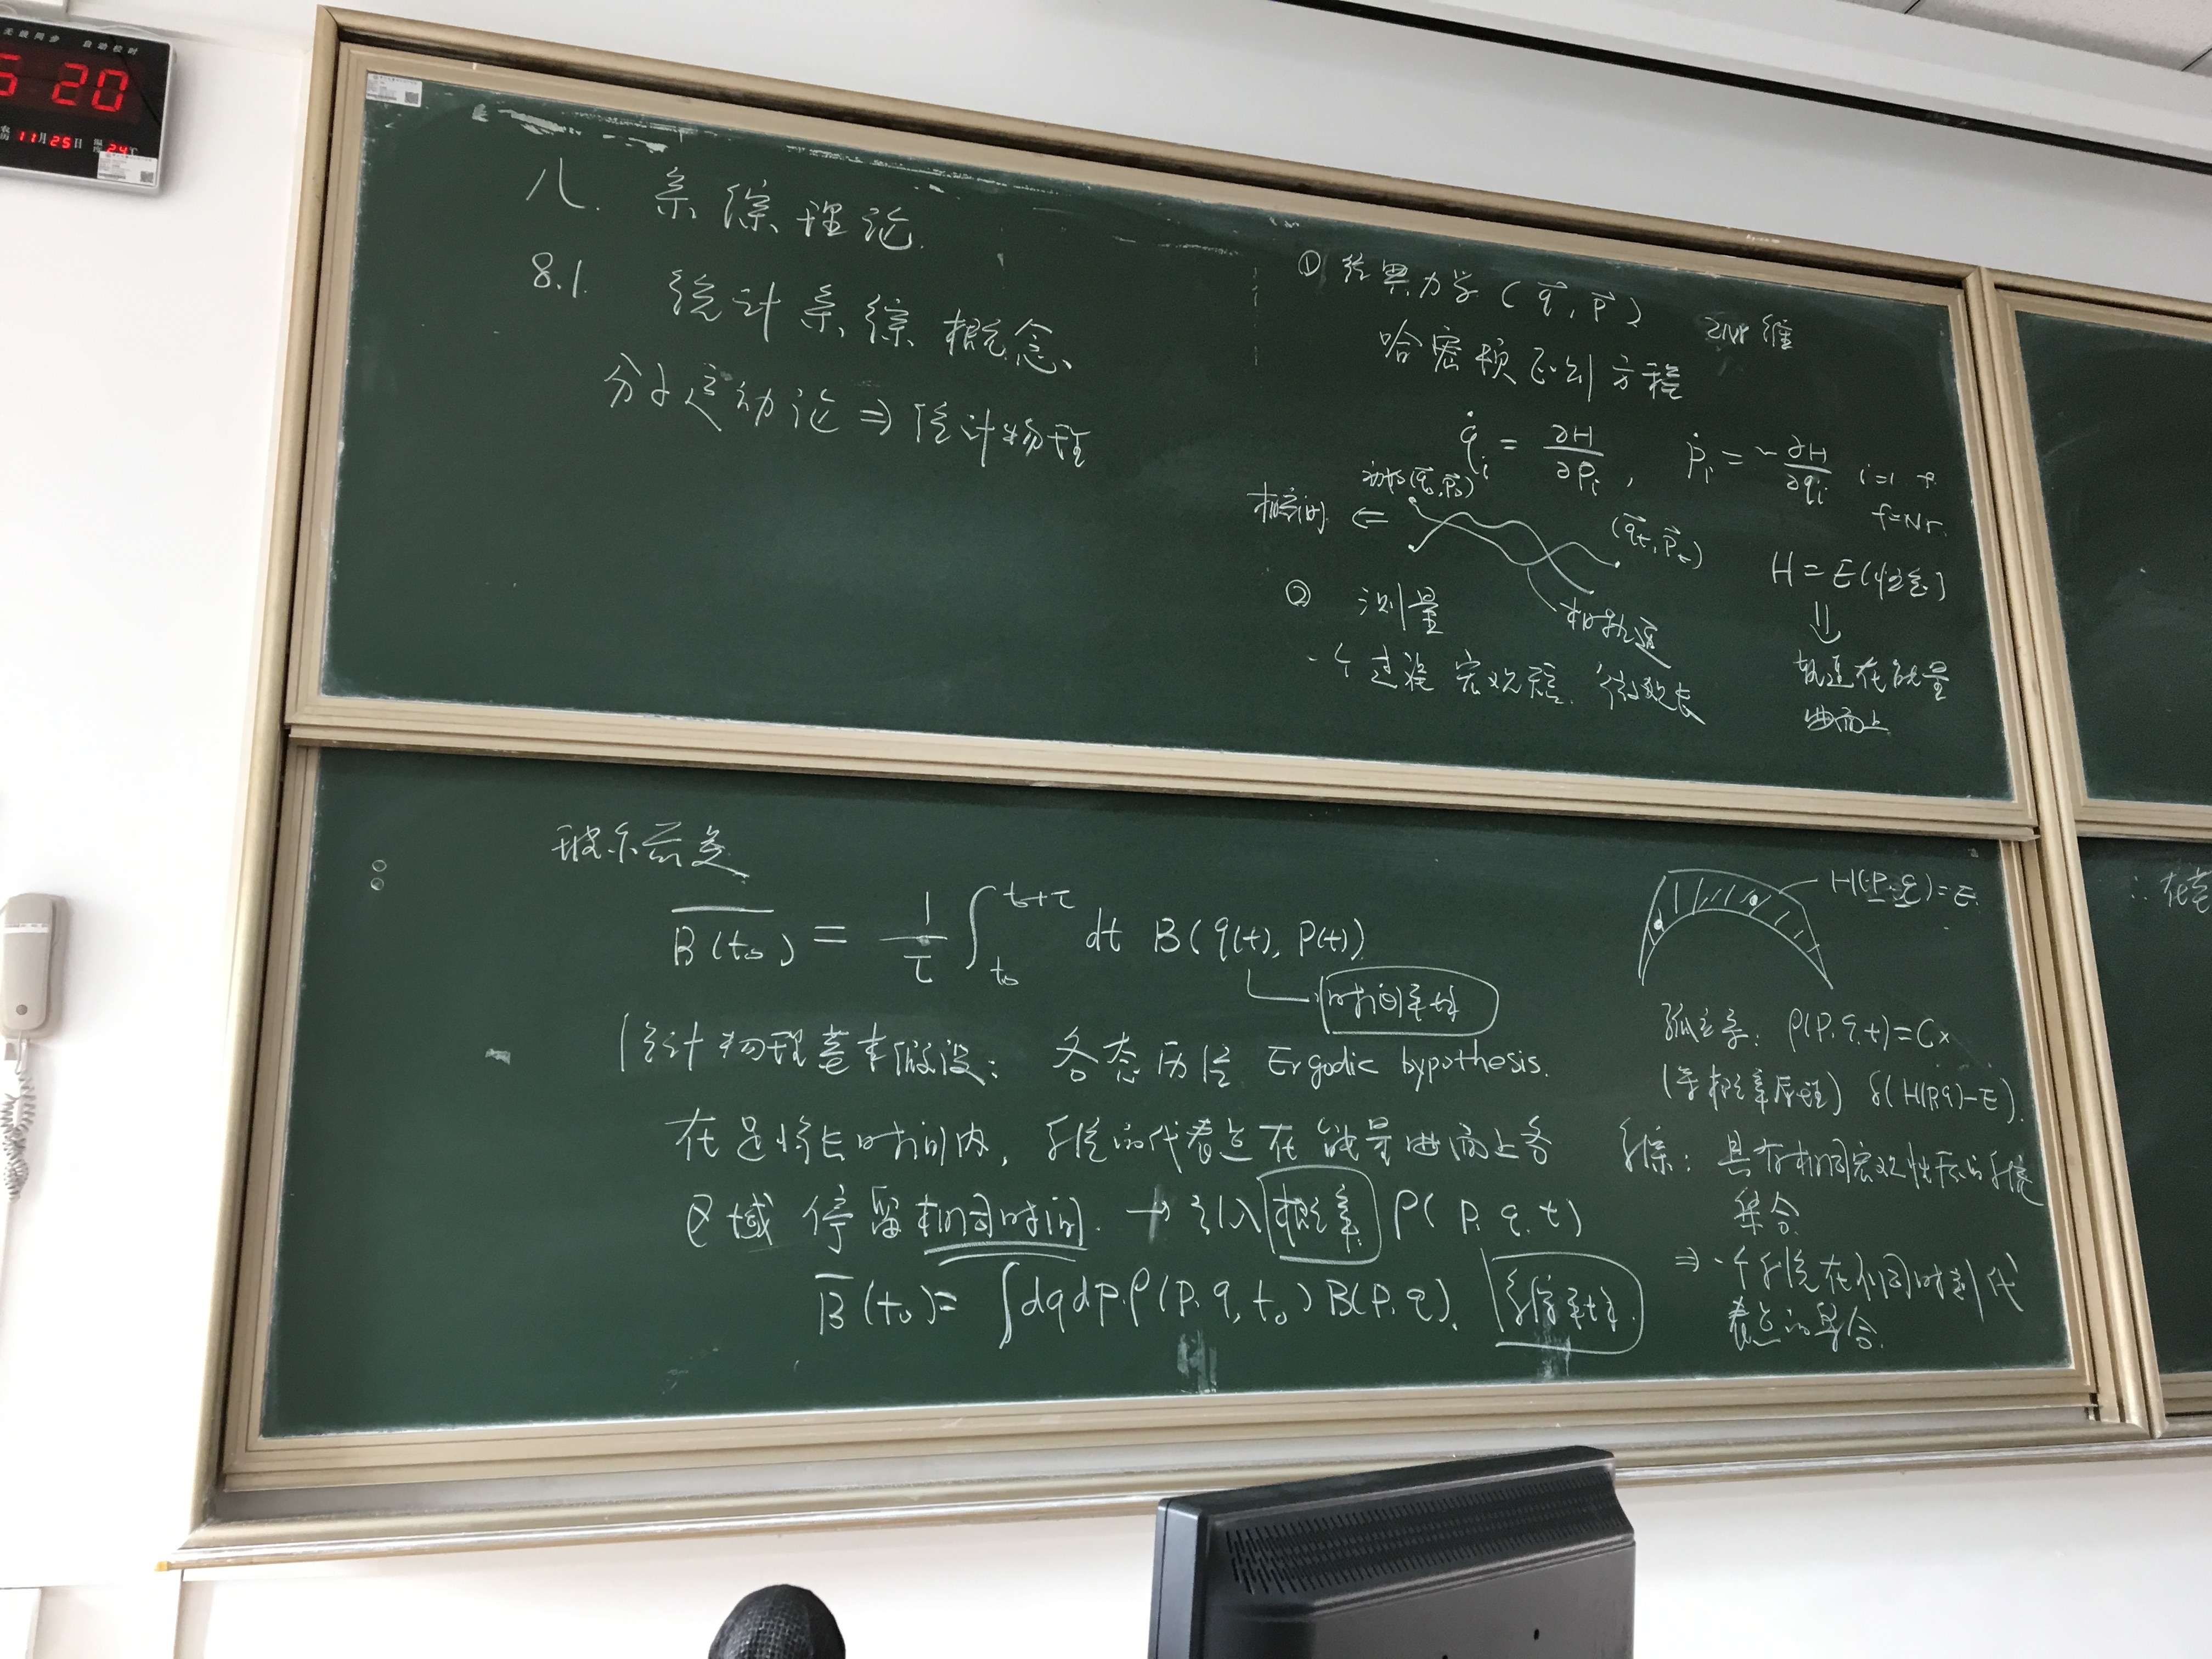 无线同步 自动校时
5 20
农历 11月25日 温度 24℃
八. 系综理论
8.1. 统计系综概念
分子运动论 ⇒ 统计物理
① 经典力学 (q⃗, p⃗) 2Nr 维
哈密顿正则方程
q̇ᵢ = ∂H/∂pᵢ , ṗᵢ = -∂H/∂qᵢ i=1
f=Nr.
初始(q⃗₀, p⃗₀)
相空间 ⇐
(q⃗ₜ, p⃗ₜ)
相轨道
H = E(恒定)
⇓
轨道在能量
曲面上
② 测量
一个过程 宏观短. 微观长
玻尔兹曼
B̅(t₀) = 1/τ ∫_{t₀}^{t₀+τ} dt B(q(t), P(t))
时间平均
统计物理基本假设: 各态历经 Ergodic hypothesis.
在足够长时间内, 系统的代表点在能量曲面上各
区域停留相同时间. → 引入概率 ρ(p, q, t)
B̅(t₀) = ∫dqdp ρ(p, q, t₀) B(p, q). 系综平均.
H(p, q) = E
孤立系: ρ(p, q, t) = C×
(等概率原理) δ(H(p,q)-E).
系综: 具有相同宏观性质的系统
集合
⇒ 一个系统在不同时刻代
表点的集合.
∴ 在